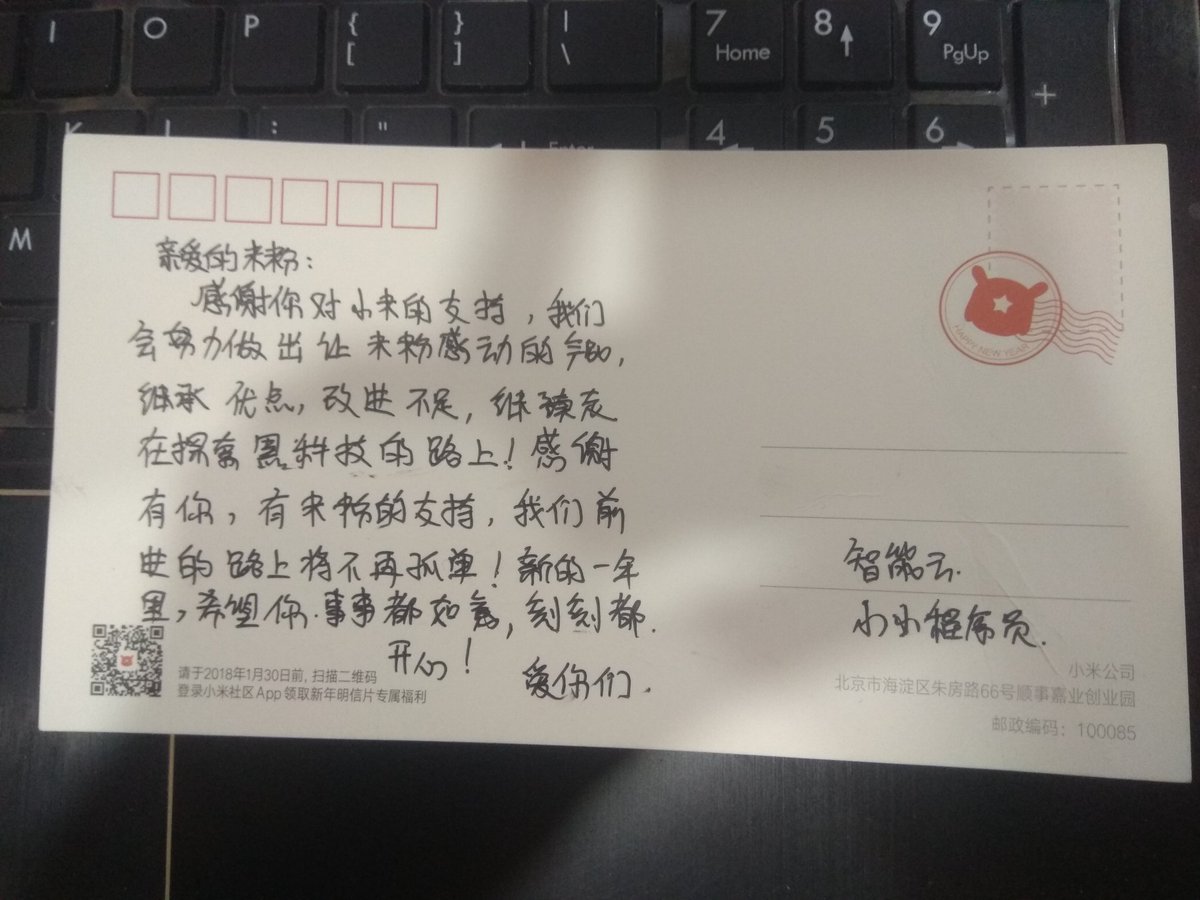 I
O
P
{
[
}
]
|
\
7
Home
8
9
PgUp
+
K
L
:
"
Enter
4
5
6
M
亲爱的米粉：
感谢你对小米的支持，我们
会努力做出让米粉感动的产品，
继承优点，改进不足，继续走
在探索黑科技的路上！感谢
有你，有米粉的支持，我们前
进的路上将不再孤单！新的一年
里，希望你事事都如意，刻刻都
开心！
爱你们.
HAPPY NEW YEAR
智能云.
小小程序员.
请于2018年1月30日前，扫描二维码
登录小米社区App领取新年明信片专属福利
小米公司
北京市海淀区朱房路66号顺事嘉业创业园
邮政编码：100085